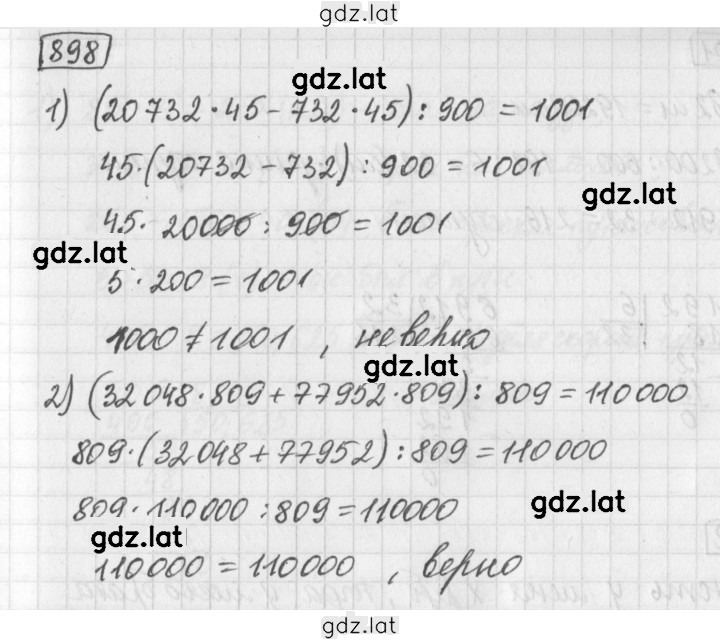 gdz.lat
898
gdz.lat
1) (20732·45-732·45):900=1001
45·(20732-732):900=1001
gdz.lat
45·20000:900=1001
gdz.lat
5·200=1001
1000≠1001, неверно
gdz.lat
2) (32048·809+77952·809):809=110000
809·(32048+77952):809=110000
809·110000:809=110000
gdz.lat
gdz.lat
110000=110000, верно
gdz.lat